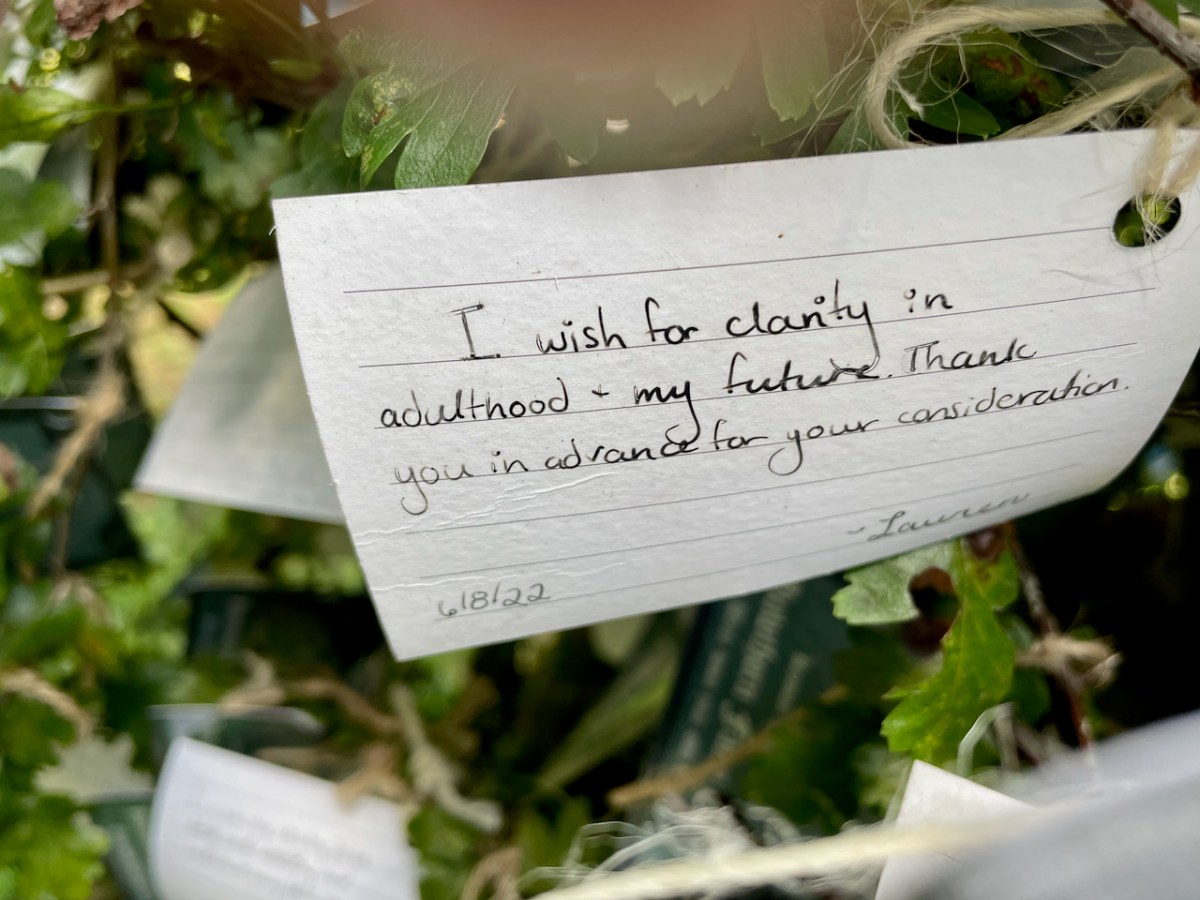 I wish for clarity in
adulthood + my future. Thank
you in advance for your consideration.
- Lauren
6/8/22